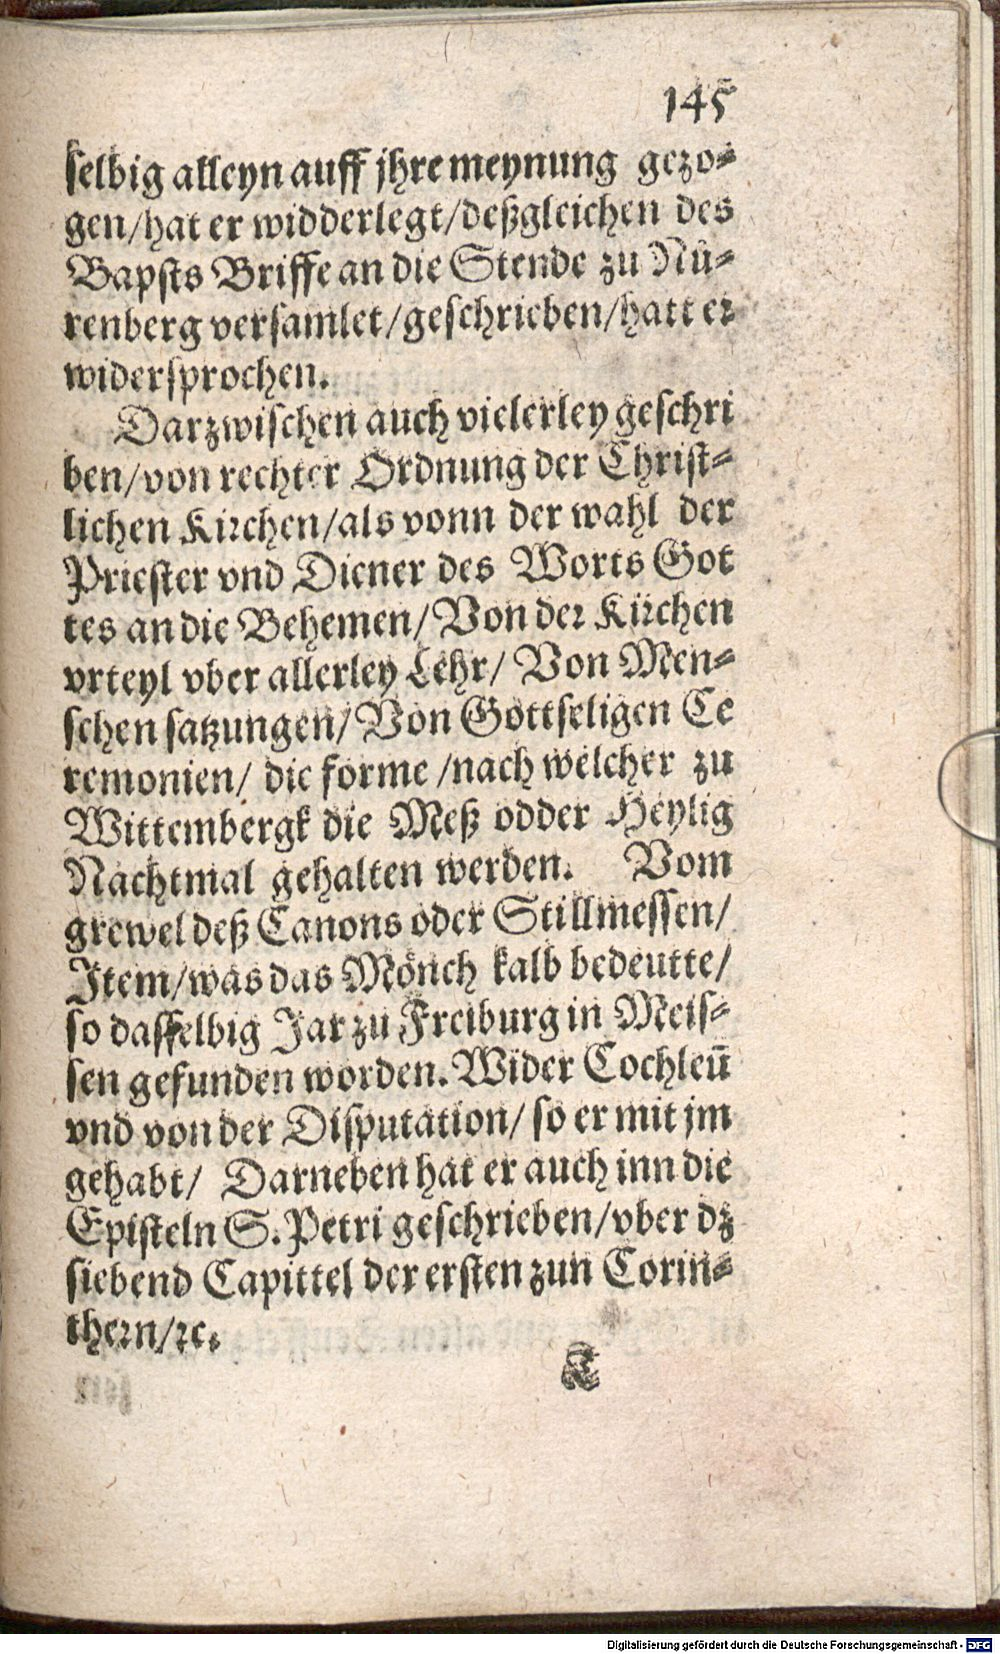 145
selbig alleyn auff jhre meynung gezo-
gen/hat er widderlegt/deßgleichen des
Bapsts Briffe an die Stende zu Nů-
renberg versamlet/geschrieben/hatt er
widersprochen.
Darzwischen auch vielerley geschri
ben/von rechter Ordnung der Christ-
lichen Kirchen/als vonn der wahl der
Priester vnd Diener des Worts Got
tes an die Behemen/Von der Kirchen
vrteyl vber allerley Lehr/ Von Men-
schen satzungen/Von Gottseligen Ce
remonien/ die forme /nach welcher zu
Wittembergk die Meß odder Heylig
Nachtmal gehalten werden. Vom
grewel deß Canons oder Stillmessen/
Item/was das Mönch kalb bedeutte/
so dasselbig Jar zu Freiburg in Meis-
sen gefunden worden. Wider Cochleū
vnd von der Disputation/ so er mit jm
gehabt/ Darneben hat er auch inn die
Episteln S. Petri geschrieben/vber dz
siebend Capittel der ersten zun Corin-
thern/ꝛc.
T
Digitalisierung gefördert durch die Deutsche Forschungsgemeinschaft - DFG